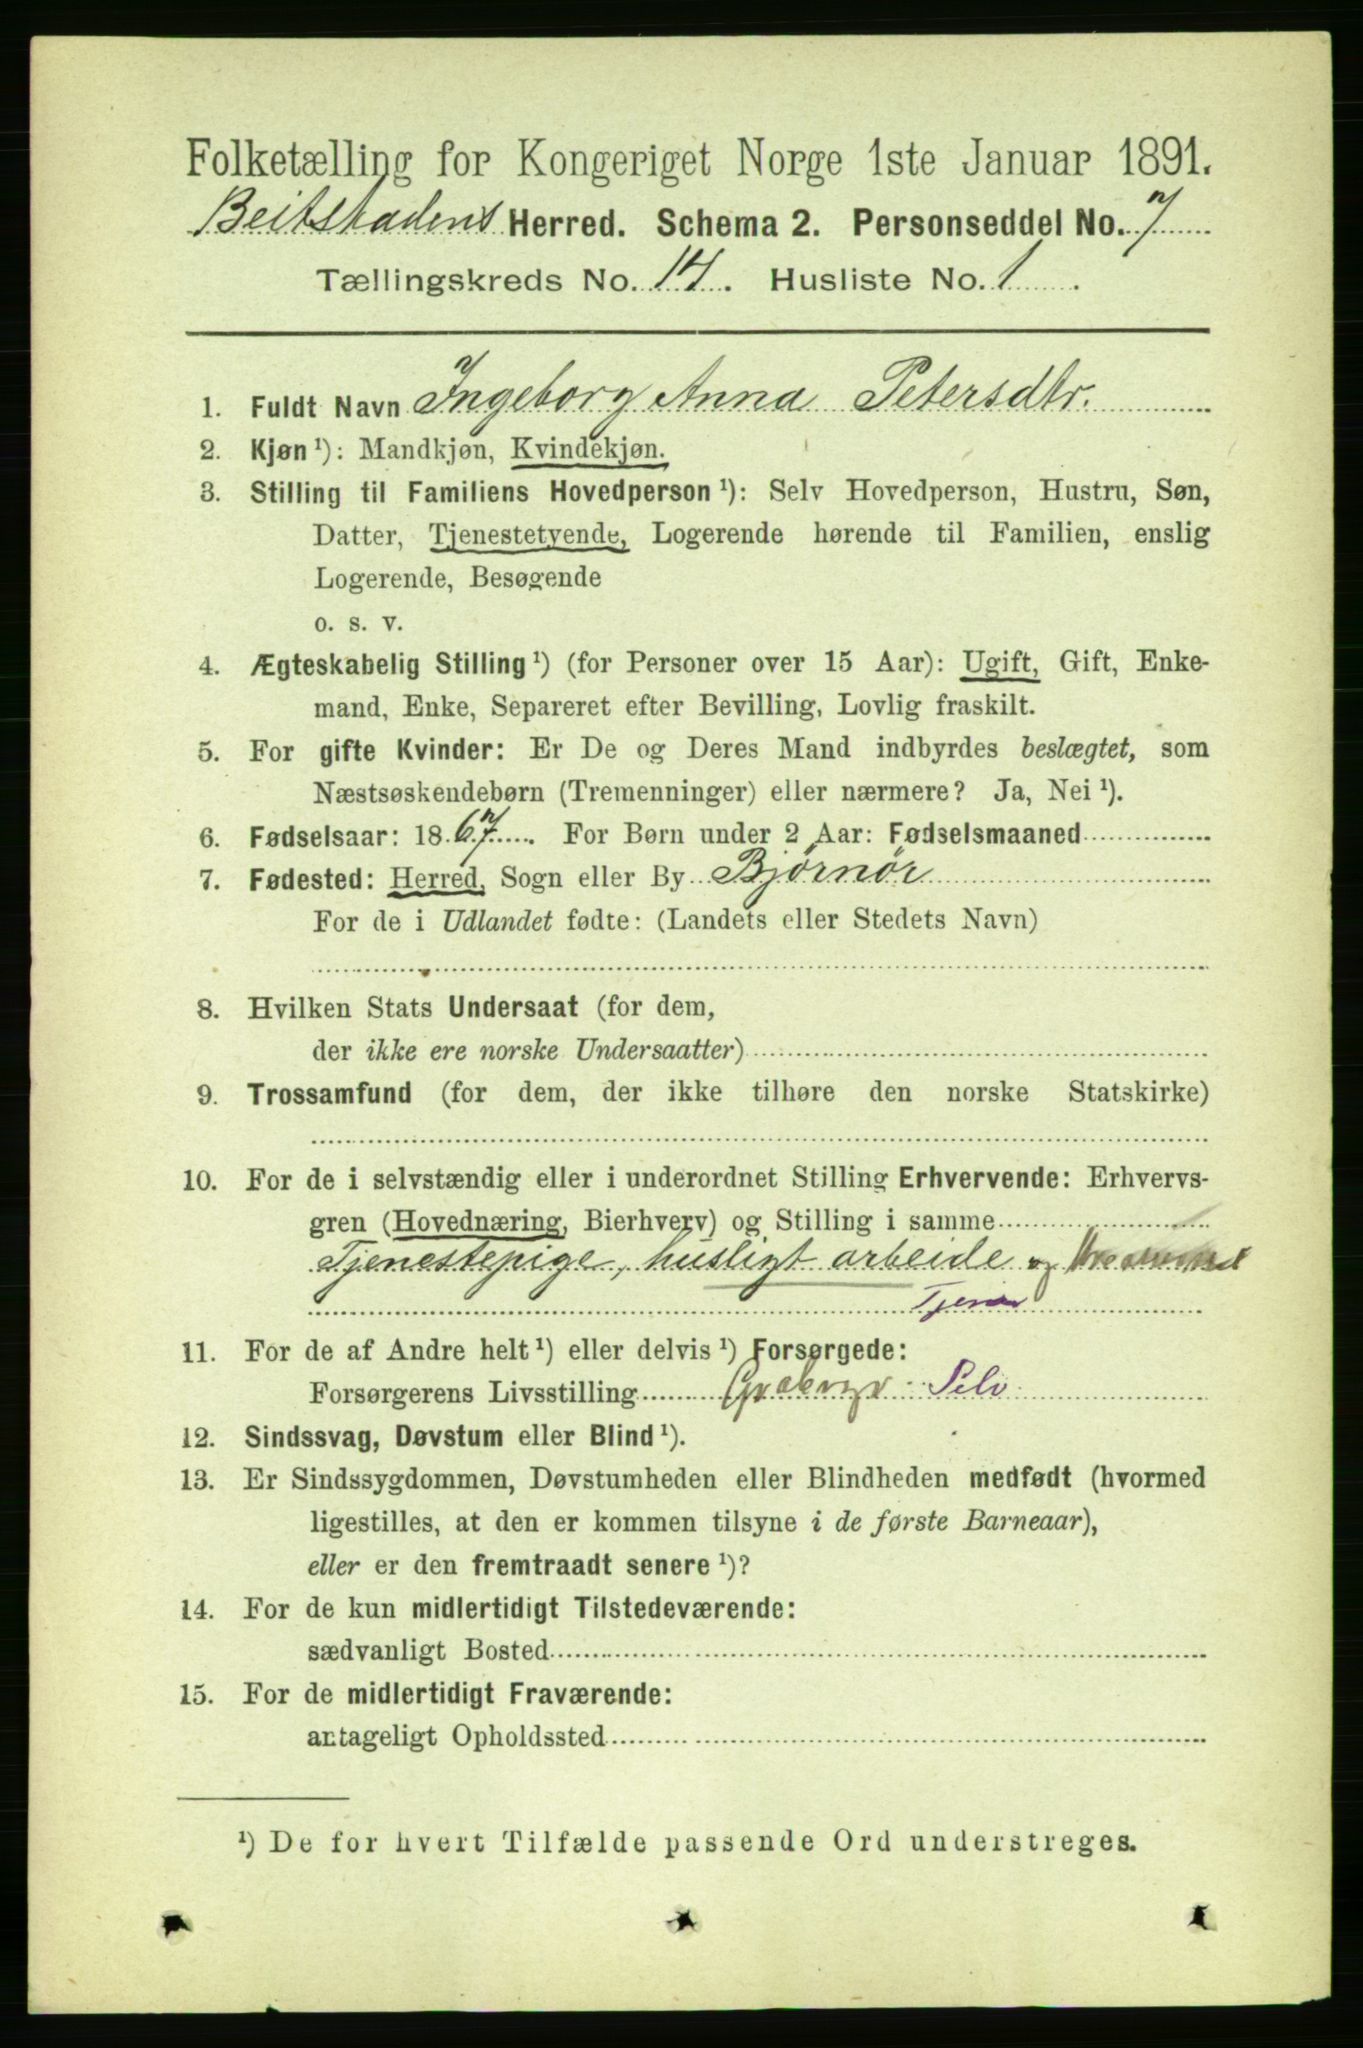 Folketælling for Kongeriget Norge 1ste Januar 1891.
Beitstadens Herred. Schema 2. Personseddel No. 7
Tællingskreds No. 14. Husliste No. 1.
1. Fuldt Navn Ingeborg Anna Petersdtr.
2. Kjøn ¹): Mandkjøn, Kvindekjøn.
3. Stilling til Familiens Hovedperson ¹): Selv Hovedperson, Hustru, Søn,
Datter, Tjenestetyende, Logerende hørende til Familien, enslig
Logerende, Besøgende
o. s. v.
4. Ægteskabelig Stilling ¹) (for Personer over 15 Aar): Ugift, Gift, Enke-
mand, Enke, Separeret efter Bevilling, Lovlig fraskilt.
5. For gifte Kvinder: Er De og Deres Mand indbyrdes beslægtet, som
Næstsøskendebørn (Tremenninger) eller nærmere? Ja, Nei ¹).
6. Fødselsaar: 1867. For Børn under 2 Aar: Fødselsmaaned
7. Fødested: Herred, Sogn eller By Bjørnør
For de i Udlandet fødte: (Landets eller Stedets Navn)
8. Hvilken Stats Undersaat (for dem,
der ikke ere norske Undersaatter)
9. Trossamfund (for dem, der ikke tilhøre den norske Statskirke)
10. For de i selvstændig eller i underordnet Stilling Erhvervende: Erhvervs-
gren (Hovednæring, Bierhverv) og Stilling i samme
Tjenestepige, husligt arbeide og
11. For de af Andre helt ¹) eller delvis ¹) Forsørgede:
Forsørgerens Livsstilling
12. Sindssvag, Døvstum eller Blind ¹).
13. Er Sindssygdommen, Døvstumheden eller Blindheden medfødt (hvormed
ligestilles, at den er kommen tilsyne i de første Barneaar),
eller er den fremtraadt senere ¹)?
14. For de kun midlertidigt Tilstedeværende:
sædvanligt Bosted
15. For de midlertidigt Fraværende:
antageligt Opholdssted
¹) De for hvert Tilfælde passende Ord understreges.